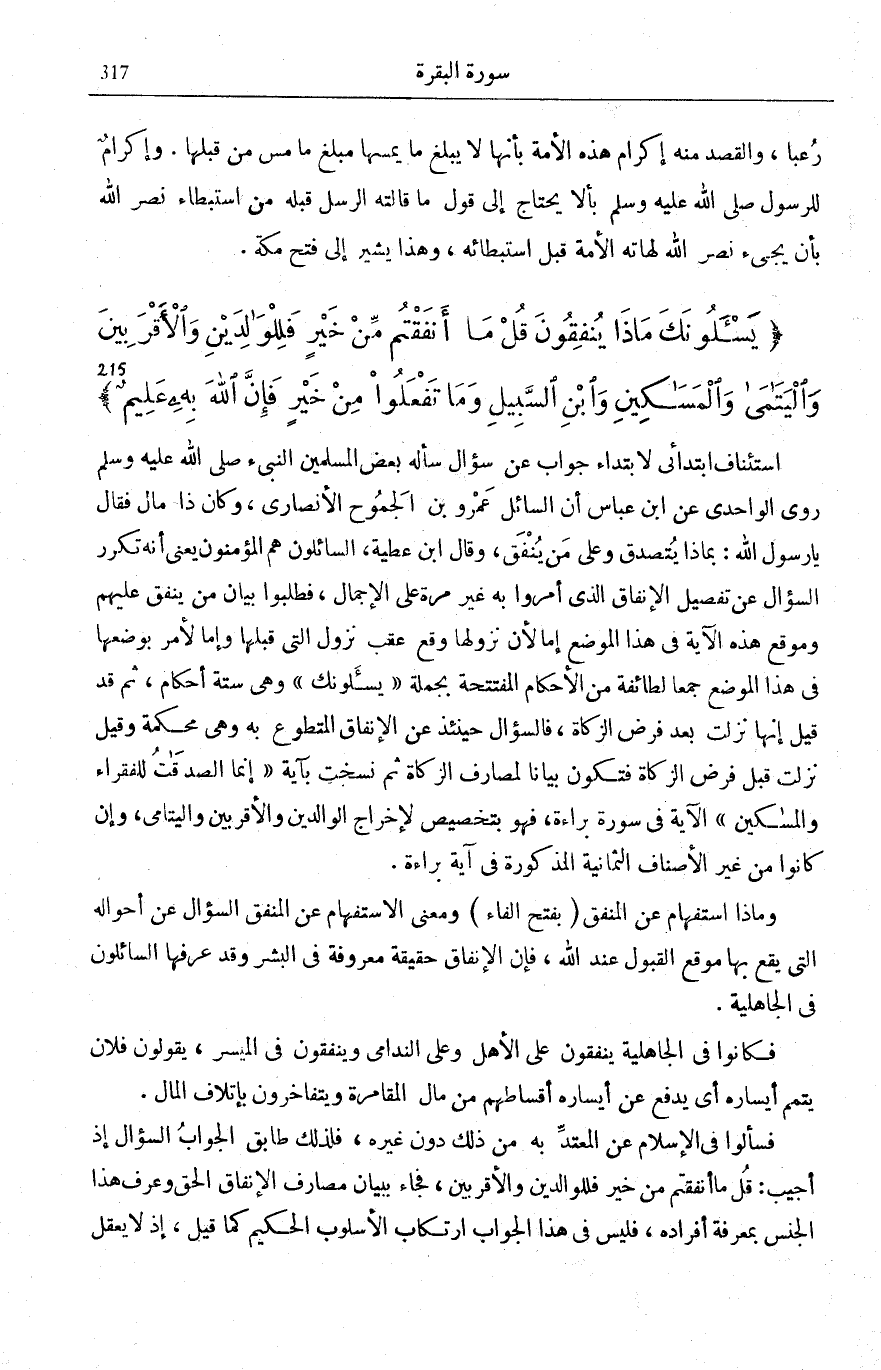 317 سورة البقرة
رُعبا ، والقصد منه إكرام هذه الأمة بأنها لا يبلغ ما يمسها مبلغ ما مس من قبلها . وإكرامٌ
للرسول صلى الله عليه وسلم بألا يحتاج إلى قول ما قالته الرسل قبله من استبطاء نصر الله
بأن يجىء نصر الله لهاته الأمة قبل استبطائه ، وهذا يشير إلى فتح مكة .
﴿ يَسْـَٔلُونَكَ مَاذَا يُنفِقُونَ قُلْ مَا أَنفَقْتُم مِّنْ خَيْرٍ فَلِلْوَٰلِدَيْنِ وَالْأَقْرَبِينَ
وَٱلْيَتَٰمَىٰ وَٱلْمَسَٰكِينِ وَٱبْنِ ٱلسَّبِيلِ وَمَا تَفْعَلُوا۟ مِنْ خَيْرٍ فَإِنَّ ٱللَّهَ بِهِۦ عَلِيمٌ ﴾ 215
استئناف ابتدائى لابتداء جواب عن سؤال سأله بعض المسلمين النبىء صلى الله عليه وسلم
روى الواحدى عن ابن عباس أن السائل عَمْرو بن الجَمُوح الأنصارى ، وكان ذا مال فقال
يارسول الله : بماذا يُتصدق وعلى مَن يُنْفَق ، وقال ابن عطية، السائلون هم المؤمنون يعنى أنه تكرر
السؤال عن تفصيل الإنفاق الذى أمروا به غير مرة على الإجمال ، فطلبوا بيان من ينفق عليهم
وموقع هذه الآية فى هذا الموضع إما لأن نزولها وقع عقب نزول التى قبلها وإما لأمر بوضعها
فى هذا الموضع جمعا لطائفة من الأحكام المفتتحة بجملة « يسـَٔلونك » وهى ستة أحكام ، ثم قد
قيل إنها نزلت بعد فرض الزكاة ، فالسؤال حينئذ عن الإنفاق المتطوع به وهى محكمة وقيل
نزلت قبل فرض الزكاة فتكون بيانا لمصارف الزكاة ثم نسخت بآية « إنما الصدقَٰتُ للفقراء
والمسٰكين » الآية فى سورة براءة، فهو بتخصيص لإخراج الوالدين والأقربين واليتامى، وإن
كانوا من غير الأصناف الثمانية المذكورة فى آية براءة .
وماذا استفهام عن المنفق ( بفتح الفاء ) ومعنى الاستفهام عن المنفق السؤال عن أحواله
التى يقع بها موقع القبول عند الله ، فإن الإنفاق حقيقة معروفة فى البشر وقد عرفها السائلون
فى الجاهلية .
فكانوا فى الجاهلية ينفقون على الأهل وعلى الندامى وينفقون فى الميسر ، يقولون فلان
يتمم أيساره أى يدفع عن أيساره أقساطهم من مال المقامرة ويتفاخرون بإتلاف المال .
فسألوا فى الإسلام عن المعتدِّ به من ذلك دون غيره ، فلذلك طابق الجوابُ السؤال إذ
أجيب: قُل ما أنفقتم من خير فللوالدين والأقربين ، فجاء ببيان مصارف الإنفاق الحق وعرف هذا
الجنس بمعرفة أفراده ، فليس فى هذا الجواب ارتكاب الأسلوب الحكيم كما قيل ، إذ لا يعقل